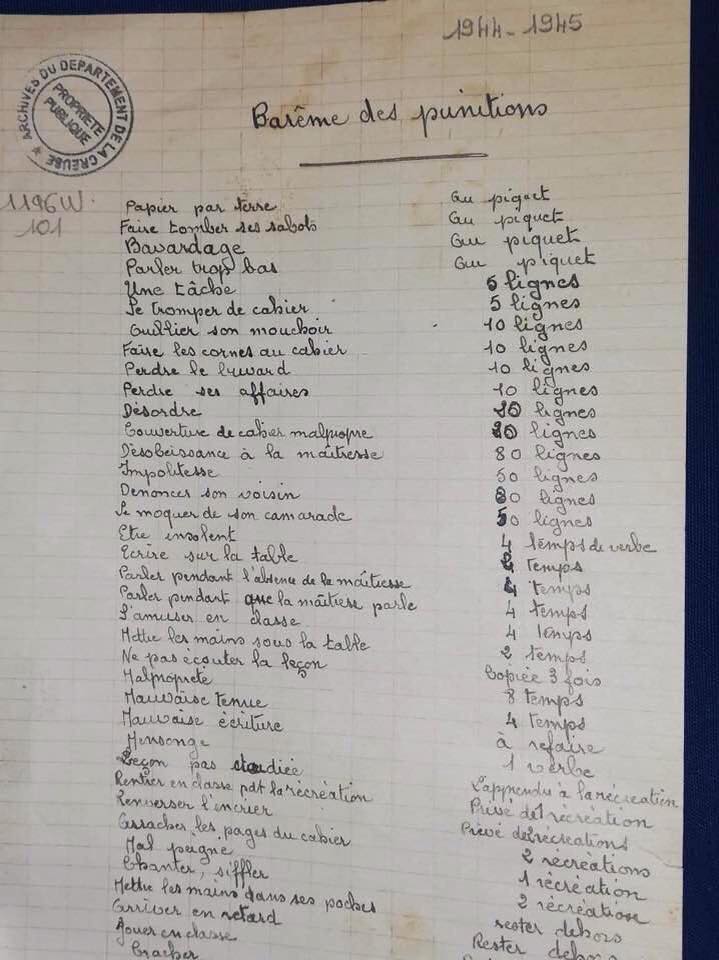 1944-1945
ARCHIVES DU DEPARTEMENT DE LA CREUSE
PROPRIETE PUBLIQUE
Barême des punitions
1196W.
101
Papier par terre Au piquet
Faire tomber ses sabots Au piquet
Bavardage Au piquet
Parler trop bas Au piquet
Une tâche 5 lignes
Se tromper de cahier 5 lignes
Oublier son mouchoir 10 lignes
Faire les cornes au cahier 10 lignes
Perdre le buvard 10 lignes
Perdre ses affaires 10 lignes
Désordre 20 lignes
Couverture de cahier malpropre 20 lignes
Désobeissance à la maîtresse 80 lignes
Impolitesse 50 lignes
Denoncer son voisin 80 lignes
Se moquer de son camarade 50 lignes
Etre insolent 4 temps de verbe
Ecrire sur la table temps
Parler pendant l'absence de la maîtresse 4 temps
Parler pendant que la maîtresse parle 4 temps
S'amuser en classe 4 temps
Mettre les mains sous la table 2 temps
Ne pas écouter la leçon Copiée 3 fois
Malpropreté 8 temps
Mauvaise tenue 4 temps
Mauvaise écriture à refaire
Mensonge 1 verbe
Leçon pas étudiée L'apprendre à la récréation
Rentrer en classe pdt la récréation Privé de 1 récréation
Renverser l'encrier Privé de 2 récréations
Arracher les pages du cahier 2 récréations
Mal peigné 1 récréation
Chanter, siffler 2 récréations
Mettre les mains dans ses poches rester dehors
Arriver en retard Rester dehors
Jouer en classe
Cracher